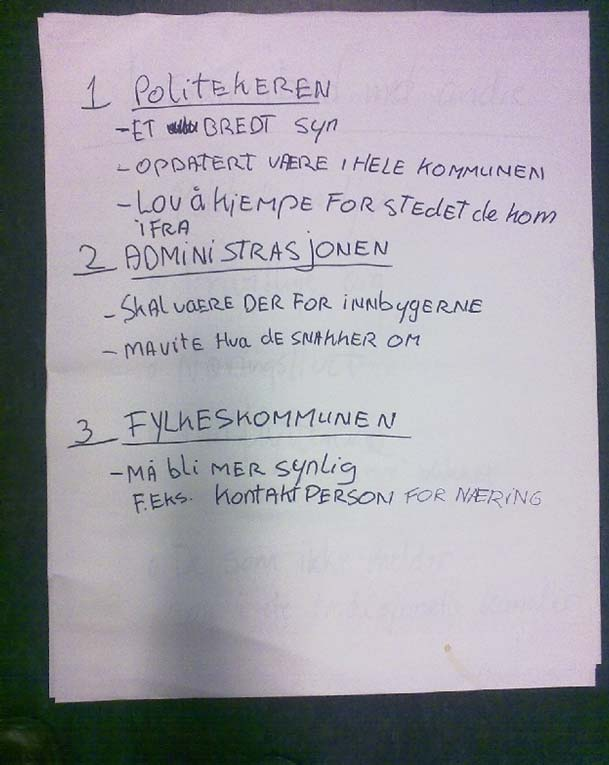 1 POLITEKEREN
- ET BREDT SYN
- OPDATERT VÆRE I HELE KOMMUNEN
- LOV Å KJEMPE FOR STEDET de kom
IFRA
2 ADMINISTRASJONEN
- SKAL VÆRE DER FOR INNBYGERNE
- MA VITE HVA de SNAKKER OM
3 FYLKESKOMMUNEN
- MÅ bli MER SYNLIG
F.EKS. KONTAKTPERSON FOR NÆRING